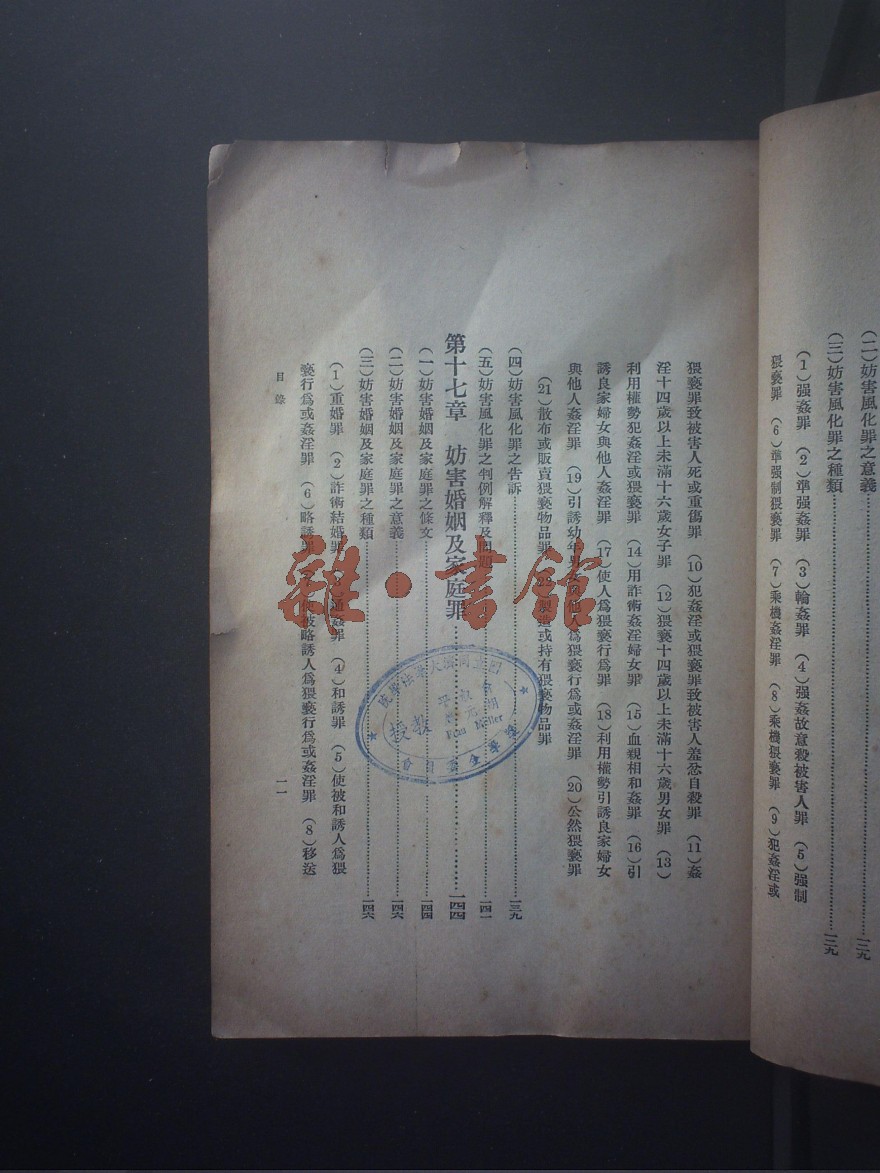 (二)妨害風化罪之意義……一三九
(三)妨害風化罪之種類……一三九
(1)强姦罪 (2)準强姦罪 (3)輪姦罪 (4)强姦故意殺被害人罪 (5)强制
猥褻罪 (6)準强制猥褻罪 (7)乘機姦淫罪 (8)乘機猥褻罪 (9)犯姦淫或
猥褻罪致被害人死或重傷罪 (10)犯姦淫或猥褻罪致被害人羞忿自殺罪 (11)姦
淫十四歲以上未滿十六歲女子罪 (12)猥褻十四歲以上未滿十六歲男女罪 (13)
利用權勢犯姦淫或猥褻罪 (14)用詐術姦淫婦女罪 (15)血親相和姦罪 (16)引
誘良家婦女與他人姦淫罪 (17)使人爲猥褻行爲罪 (18)利用權勢引誘良家婦女
與他人姦淫罪 (19)引誘幼年男女與他人爲猥褻行爲或姦淫罪 (20)公然猥褻罪
(21)散布或販賣猥褻物品罪 製造或持有猥褻物品罪
(四)妨害風化罪之告訴……一三九
(五)妨害風化罪之判例解釋及問題……一四一
第十七章 妨害婚姻及家庭罪……一四四
(一)妨害婚姻及家庭罪之條文……一四四
(二)妨害婚姻及家庭罪之意義……一四六
(三)妨害婚姻及家庭罪之種類……一四六
(1)重婚罪 (2)詐術結婚罪 (3)通姦罪 (4)和誘罪 (5)使被和誘人爲猥
褻行爲或姦淫罪 (6)略誘罪 使被略誘人爲猥褻行爲或姦淫罪 (8)移送
目錄
一一
雜·書館
大學法學院
教授
Möller